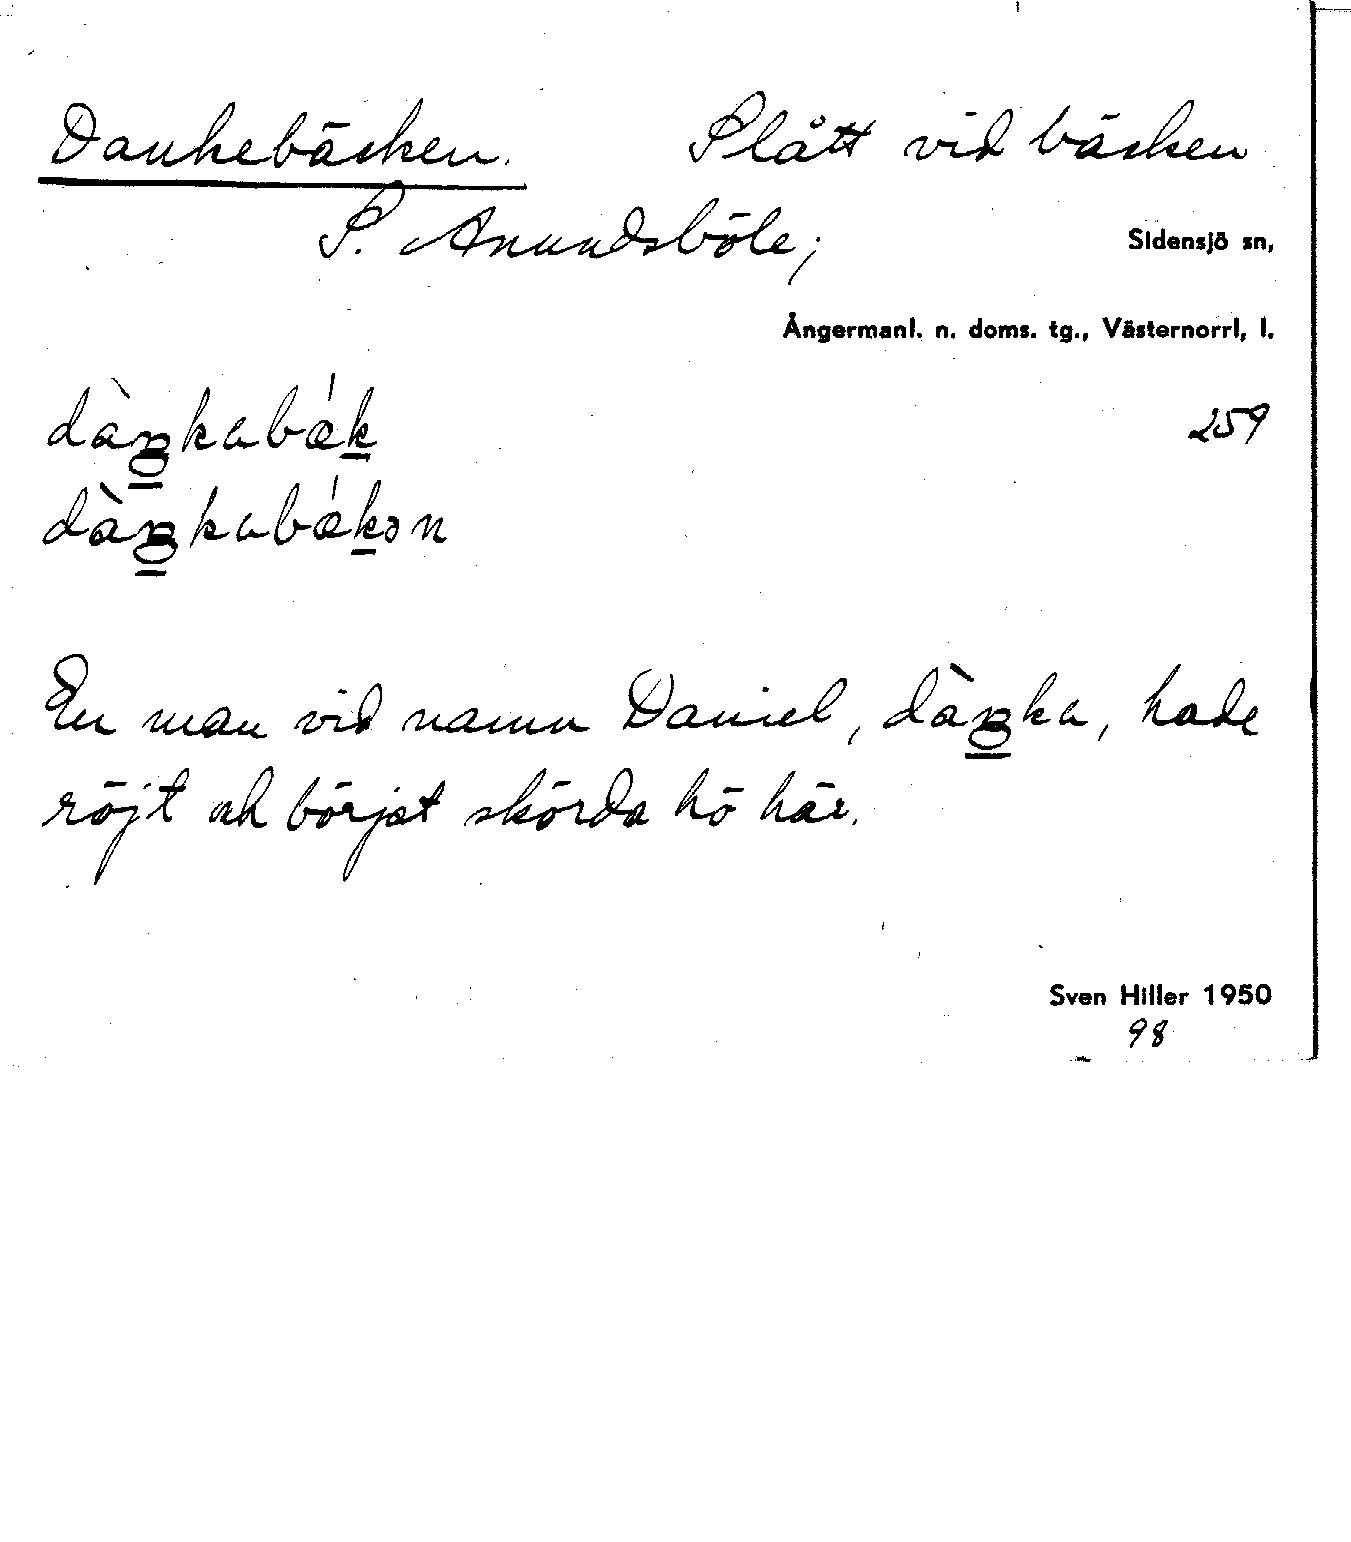 Dankebäcken. Slått vid bäcken
S. Anundsböle,
Sidensjö sn,
Ångermanl. n. doms. tg., Västernorrl, l.
dàŋkabák
259
dàŋkabákən
En man vid namn Daniel, dàŋka, hade
röjt och börjat skörda hö här.
Sven Hiller 1950
98